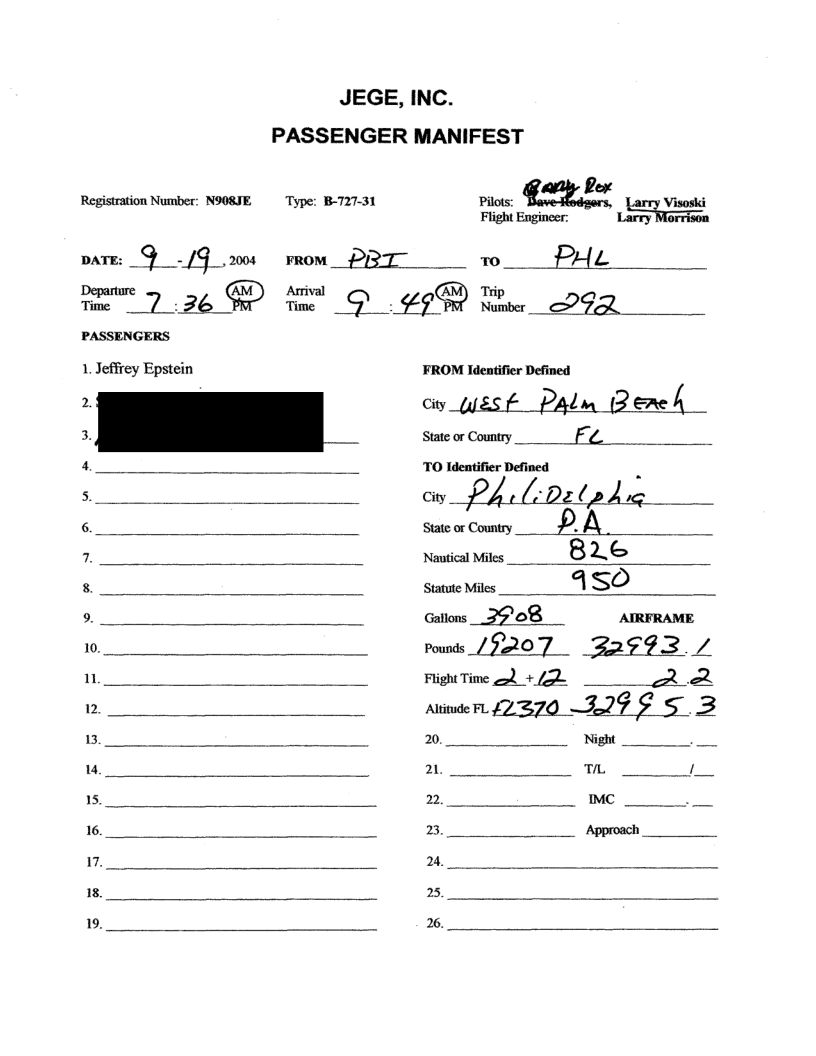 JEGE, INC.
PASSENGER MANIFEST
Registration Number: N908JE Type: B-727-31 Pilots: Dave Rodgers, Larry Visoski
Flight Engineer: Larry Morrison
DATE: 9 - 19, 2004 FROM PBI TO PHL
Departure Time 7 : 36 AM PM Arrival Time 9 : 49 AM PM Trip Number 292
PASSENGERS
1. Jeffrey Epstein
2.
3.
4.
5.
6.
7.
8.
9.
10.
11.
12.
13.
14.
15.
16.
17.
18.
19.
FROM Identifier Defined
City WEST PALM BEACh
State or Country FL
TO Identifier Defined
City PhiliDElphia
State or Country P.A.
Nautical Miles 826
Statute Miles 950
Gallons 3908 AIRFRAME
Pounds 19207 32993.1
Flight Time 2 + 12 2.2
Altitude FL FL370 32995.3
20. Night .
21. T/L /
22. IMC .
23. Approach
24.
25.
26.